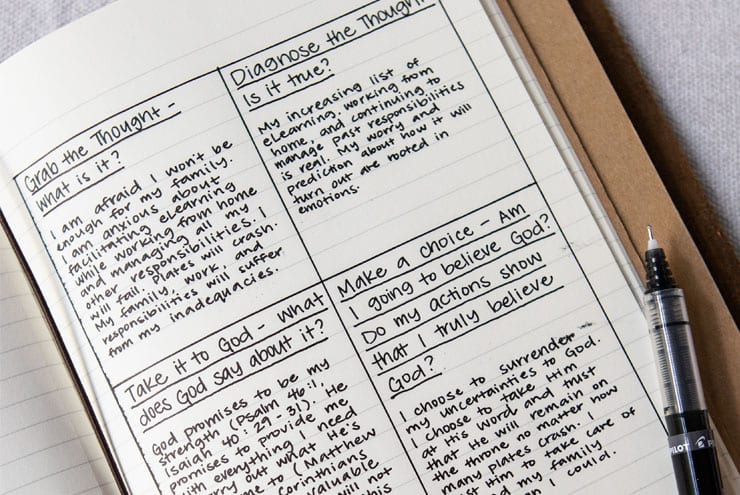 Grab the Thought -
what is it?
I am afraid I won't be
enough for my family.
I am anxious about
facilitating eLearning
while working from home
and managing all my
other responsibilities. I
will fall, plates will crash.
My family, work, and
responsibilities will suffer
from my inadequacies.
Diagnose the Thought -
Is it true?
My increasing list of
eLearning, working from
home, and continuing to
manage past responsibilities
is real. My worry and
prediction about how it will
turn out are rooted in
emotions.
Take it to God - what
does God say about it?
God promises to be my
strength (Psalm 46:1,
Isaiah 40:29-31). He
promises to provide me
with everything I need
carry out what He's
me to (Matthew
Corinthians
valuable
will not
this
Make a choice - Am
I going to believe God?
Do my actions show
that I truly believe
God?
I choose to surrender
my uncertainties to God.
I choose to take Him
at His word and trust
that He will remain on
the throne no matter how
many plates crash. I
Him to take care of
nd my family
I could.
PILOT